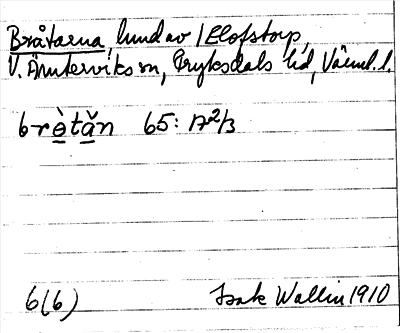 Bråtarna, hmd av 1 Elofstorp,
V. Ämterviks sn, Fryksdals hd, Värml. l.
brètǎn 65: 17²/3
6(6)
Isak Wallin 1910